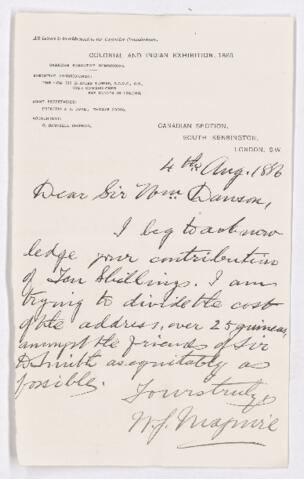 All letters to be addressed to the Executive Commissioner.
COLONIAL AND INDIAN EXHIBITION, 1886
CANADIAN EXECUTIVE COMMISSION.
EXECUTIVE COMMISSIONER:
HIGH COMMISSIONER
FOR CANADA IN LONDON.
JOINT SECRETARIES:
ACCOUNTANT:
CANADIAN SECTION,
SOUTH KENSINGTON,
LONDON, S.W.
4th Aug. 1886
Dear Sir Wm Dawson,
I beg to acknow
ledge your contribution
of Ten Shillings. I am
trying to divide the cost
of the address, over 25 guineas,
amongst the friends of Sir
D. Smith as equitably as
possible.
Yours truly,
W. J. Maguire